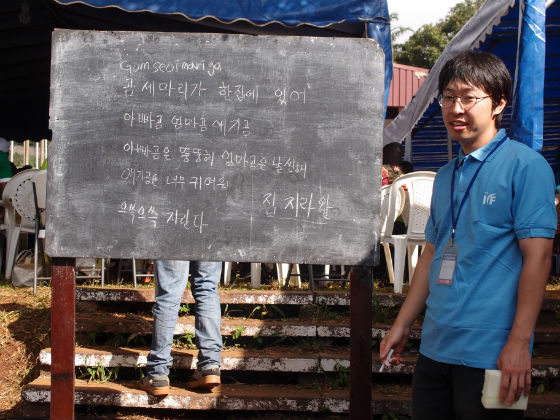 Gom seoi mari ga
곰 세마리가 한집에 있어
아빠곰 엄마곰 애기곰
아빠곰은 뚱뚱해 엄마곰은 날씬해
애기곰은 너무 귀여워
으쓱으쓱 자란다
IYF